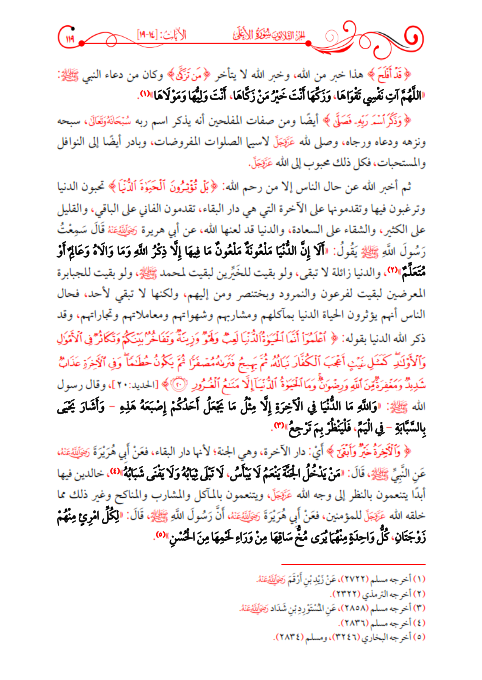 الجزء الثلاثون سُورَةُ الأَعْلَى الآيات: [١٤-١٩] ١١٩
﴿قَدْ أَفْلَحَ﴾ هذا خبر من الله، وخبر الله لا يتأخر ﴿مَن تَزَكَّىٰ﴾ وكان من دعاء النبي ﷺ:
«اللَّهُمَّ آتِ نَفْسِي تَقْوَاهَا، وَزَكِّهَا أَنْتَ خَيْرُ مَنْ زَكَّاهَا، أَنْتَ وَلِيُّهَا وَمَوْلَاهَا»(١).
﴿وَذَكَرَ ٱسْمَ رَبِّهِۦ فَصَلَّىٰ﴾ أيضًا ومن صفات المفلحين أنه يذكر اسم ربه سُبْحَانَهُ وَتَعَالَى، سبحه
ونزهه ودعاه ورجاه، وصلى لله عَزَّوَجَلَّ لاسيما الصلوات المفروضات، وبادر أيضًا إلى النوافل
والمستحبات، فكل ذلك محبوب إلى الله عَزَّوَجَلَّ.
ثم أخبر الله عن حال الناس إلا من رحم الله: ﴿بَلْ تُؤْثِرُونَ ٱلْحَيَوٰةَ ٱلدُّنْيَا﴾ تحبون الدنيا
وترغبون فيها وتقدمونها على الآخرة التي هي دار البقاء، تقدمون الفاني على الباقي، والقليل
على الكثير، والشقاء على السعادة، والدنيا قد لعنها الله، عن أبي هريرة رَضِيَاللَّهُعَنْهُ قَالَ سَمِعْتُ
رَسُولَ اللَّهِ ﷺ يَقُولُ: «أَلَا إِنَّ الدُّنْيَا مَلْعُونَةٌ مَلْعُونٌ مَا فِيهَا إِلَّا ذِكْرُ اللَّهِ وَمَا وَالَاهُ وَعَالِمٌ أَوْ
مُتَعَلِّمٌ»(٢)، والدنيا زائلة لا تبقى، ولو بقيت للخَيِّرين لبقيت لمحمد ﷺ، ولو بقيت للجبابرة
المعرضين لبقيت لفرعون والنمرود وبختنصر ومن إليهم، ولكنها لا تبقى لأحد، فحال
الناس أنهم يؤثرون الحياة الدنيا بمآكلهم ومشاربهم وشهواتهم ومعاملاتهم وتجاراتهم، وقد
ذكر الله الدنيا بقوله: ﴿ٱعْلَمُوٓا۟ أَنَّمَا ٱلْحَيَوٰةُ ٱلدُّنْيَا لَعِبٌ وَلَهْوٌ وَزِينَةٌ وَتَفَاخُرٌۢ بَيْنَكُمْ وَتَكَاثُرٌ فِى ٱلْأَمْوَٰلِ
وَٱلْأَوْلَٰدِ كَمَثَلِ غَيْثٍ أَعْجَبَ ٱلْكُفَّارَ نَبَاتُهُۥ ثُمَّ يَهِيجُ فَتَرَىٰهُ مُصْفَرًّا ثُمَّ يَكُونُ حُطَٰمًا وَفِى ٱلْءَاخِرَةِ عَذَابٌ
شَدِيدٌ وَمَغْفِرَةٌ مِّنَ ٱللَّهِ وَرِضْوَٰنٌ وَمَا ٱلْحَيَوٰةُ ٱلدُّنْيَآ إِلَّا مَتَٰعُ ٱلْغُرُورِ ۝٢٠﴾ [الحديد: ٢٠]، وقال رسول
الله ﷺ: «وَاللَّهِ مَا الدُّنْيَا فِي الْآخِرَةِ إِلَّا مِثْلُ مَا يَجْعَلُ أَحَدُكُمْ إِصْبَعَهُ هَذِهِ - وَأَشَارَ يَحْيَى
بِالسَّبَّابَةِ - فِي الْيَمِّ، فَلْيَنْظُرْ بِمَ تَرْجِعُ»(٣).
﴿وَٱلْءَاخِرَةُ خَيْرٌ وَأَبْقَىٰٓ﴾ أيْ: دار الآخرة، وهي الجنة؛ لأنها دار البقاء، فعَنْ أَبِي هُرَيْرَةَ رَضِيَاللَّهُعَنْهُ،
عَنِ النَّبِيِّ ﷺ، قَالَ: «مَنْ يَدْخُلُ الْجَنَّةَ يَنْعَمُ لَا يَبْأَسُ، لَا تَبْلَى ثِيَابُهُ وَلَا يَفْنَى شَبَابُهُ»(٤)، خالدين فيها
أبدًا يتنعمون بالنظر إلى وجه الله عَزَّوَجَلَّ، ويتنعمون بالمآكل والمشارب والمناكح وغير ذلك مما
خلقه الله عَزَّوَجَلَّ للمؤمنين، فعَنْ أَبِي هُرَيْرَةَ رَضِيَاللَّهُعَنْهُ، أَنَّ رَسُولَ اللَّهِ ﷺ، قَالَ: «لِكُلِّ امْرِئٍ مِنْهُمْ
زَوْجَتَانِ، كُلُّ وَاحِدَةٍ مِنْهُمَا يُرَى مُخُّ سَاقِهَا مِنْ وَرَاءِ لَحْمِهَا مِنَ الْحُسْنِ»(٥).
(١) أخرجه مسلم (٢٧٢٢)، عَنْ زَيْدِ بْنِ أَرْقَمَ رَضِيَاللَّهُعَنْهُ.
(٢) أخرجه الترمذي (٢٣٢٢).
(٣) أخرجه مسلم (٢٨٥٨)، عَنِ الْمُسْتَوْرِدِ بْنِ شَدَّاد رَضِيَاللَّهُعَنْهُ.
(٤) أخرجه مسلم (٢٨٣٦).
(٥) أخرجه البخاري (٣٢٤٦)، ومسلم (٢٨٣٤).